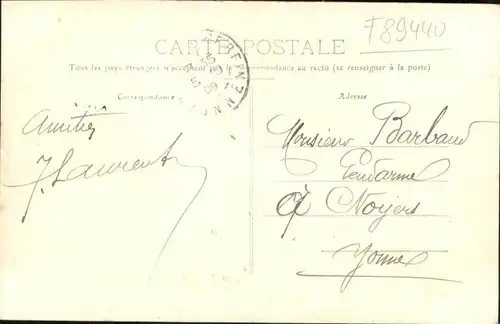 F89440
CARTE POSTALE
Tous les pays étrangers n'acceptent pas la correspondance au recto (se renseigner à la poste)
Correspondance
Adresse
Amitiés
J Laurent
Monsieur Barbaud
Gendarme
à Noyers
Yonne